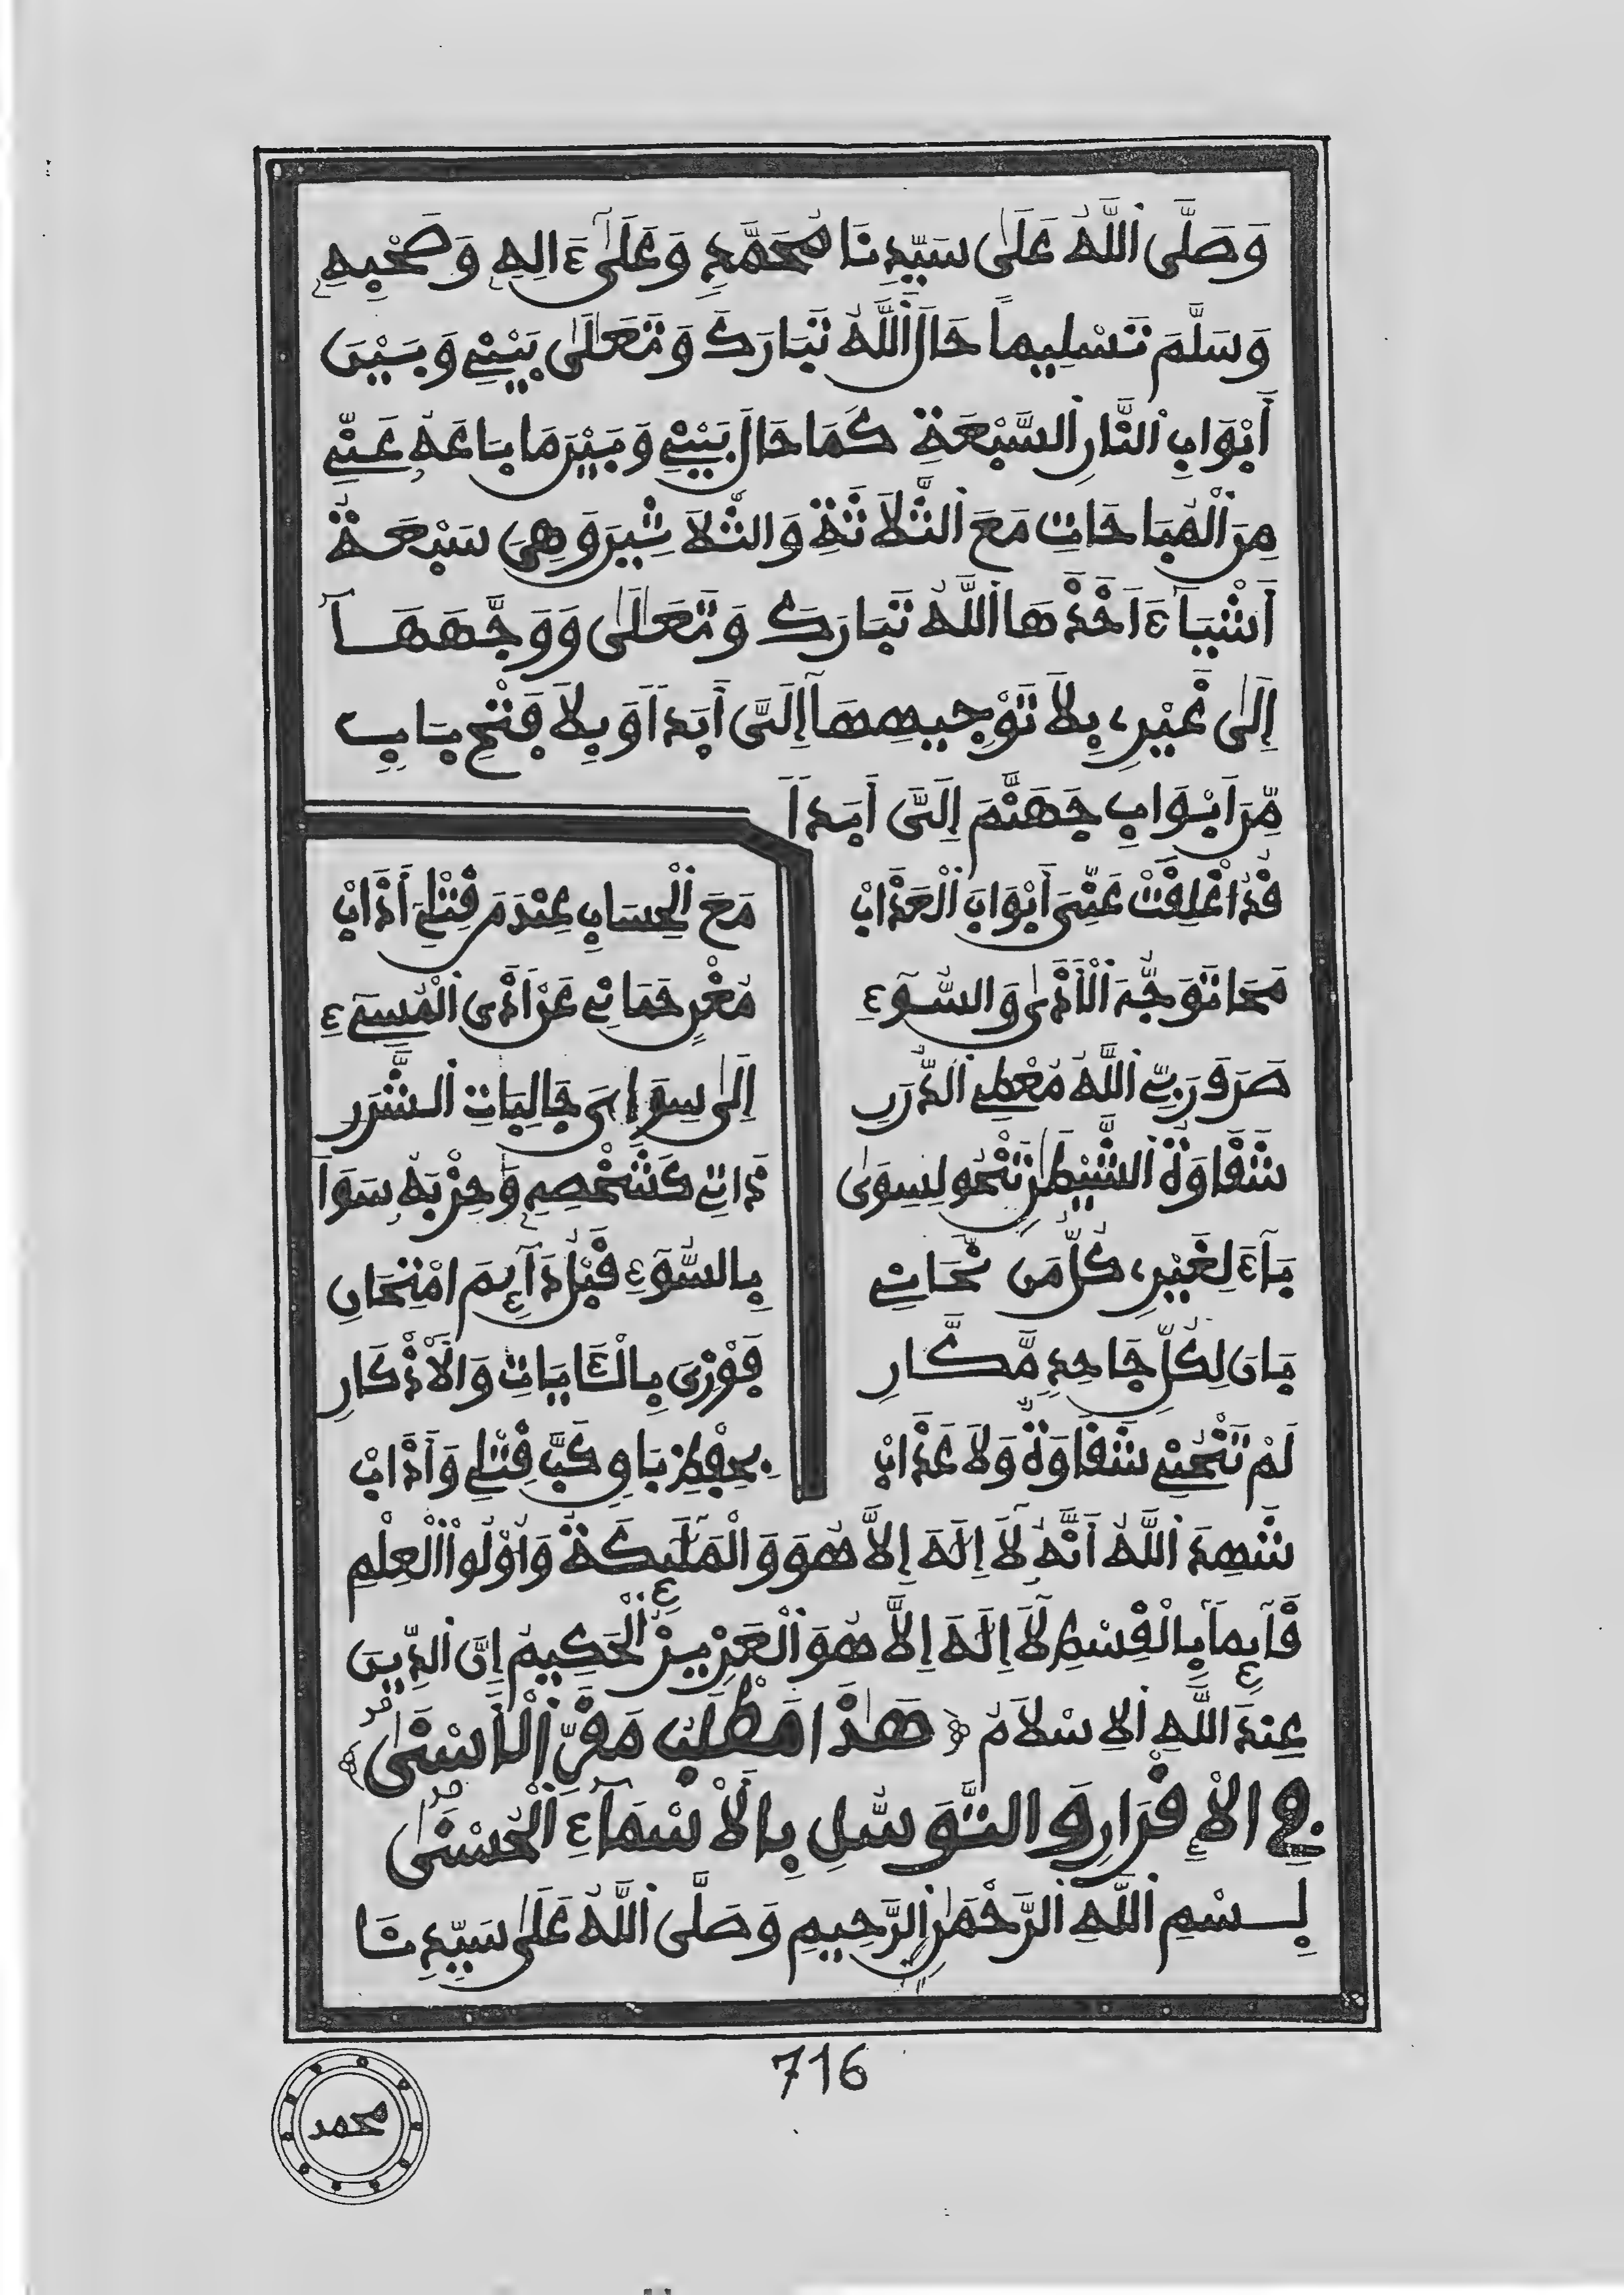 وَصَلَّى اللَّهُ عَلَى سَيِّدِنَا مُحَمَّدٍ وَعَلَىٰ ءَالِهِ وَصَحْبِهِ
وَسَلَّمَ تَسْلِيماً حَالَ اللَّهُ تَبَارَكَ وَتَعَالَىٰ بَيْنِي وَبَيْنَ
أَبْوَابِ النَّارِ السَّبْعَةِ كَمَا حَالَ بَيْنِي وَبَيْنَ مَا بَاعَهُ عَنِّي
مِنَ الْمُبَاحَاتِ مَعَ الثَّلَاثَةِ وَالثَّلَاثِينَ وَهِيَ سَبْعَةُ
أَشْيَاءَ اَخَذَهَا اللَّهُ تَبَارَكَ وَتَعَالَىٰ وَوَجَّهَهَا
إِلَىٰ غَيْرِي بِلَا تَوْجِيهِهَا إِلَيَّ أَبَداً اَوْ بِلَا فَتْحِ بَابٍ
مِّنَ اَبْوَابِ جَهَنَّمَ إِلَيَّ أَبَداً
قَدُ اغْلِقَتْ عَنِّيَ أَبْوَابُ الْعَذَابْ
مَعَ الْحِسَابِ عِنْدَ مَن قِتَلِي أَذَابْ
مَحَا تَوَجُّهَ الْأَذَىٰ وَالسُّوءِ
مُغْنٍ حَمَانِي عَنْ أَذَى الْمُسِيءِ
صَرَفَ رَبِّي اللَّهُ مُعْطِي الدُّرَرِ
إِلَىٰ سِوَاءِيَ جَالِبَاتِ الشَّرَرِ
شَقَاوَةُ الشَّيْطَٰنِ تَنْحُو لِسِوَىٰ
ذَاتِي كَشَخْصِهِ وَحِزْبَهُ سَوَا
بَاءَ لِغَيْرِي كُلُّ مَن نَحَانِي
بِالسُّوءِ قَبْلُ دَائِمَ امْتِحَانِ
بَانَ لِكُلِّ جَاحِدٍ مَّكَّارِ
فَوْزِيَ بِالْـَٔايَاتِ وَالْأَذْكَارِ
لَمْ تَنْحُنِي شَقَاوَةٌ وَلَا عَذَابْ
بِحِفْظِ بَاقٍ كَبَّ قِتَلِي وَأَذَابْ
شَهِدَ اللَّهُ أَنَّهُ لَا إِلَٰهَ إِلَّا هُوَ وَالْمَلَٰئِكَةُ وَأُوْلُواْ الْعِلْمِ
قَائِماً بِالْقِسْطِ لَا إِلَٰهَ إِلَّا هُوَ الْعَزِيزُ الْحَكِيمُ إِنَّ الدِّينَ
عِندَ اللَّهِ الْإِسْلَامُ ﴿هَٰذَا مَطْلَبُ مَقَرِّ الْأَسْنَىٰ﴾
فِي الْإِقْرَارِ وَالتَّوَسُّلِ بِالْأَسْمَاءِ الْحُسْنَىٰ
بِسْمِ اللَّهِ الرَّحْمَٰنِ الرَّحِيمِ وَصَلَّى اللَّهُ عَلَىٰ سَيِّدِنَا
716
محمد